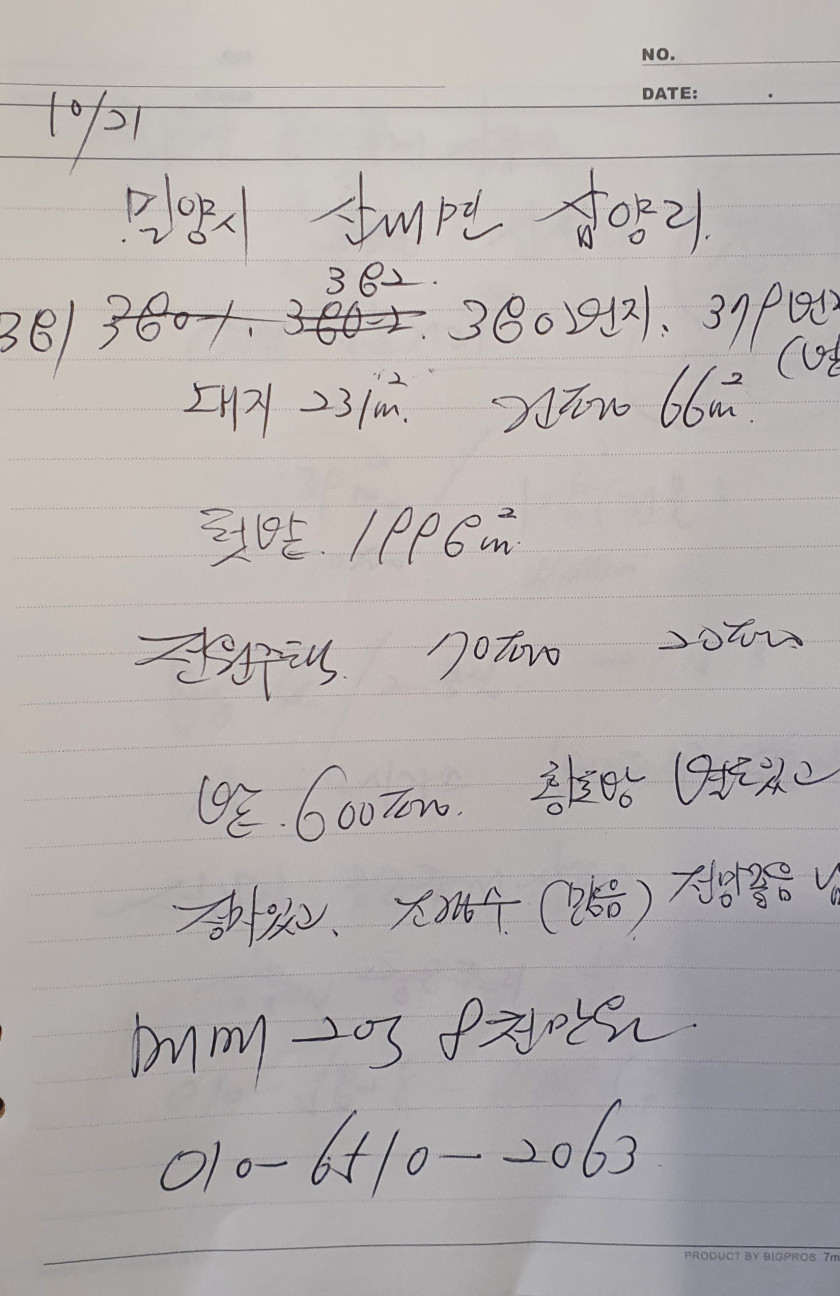 NO.
DATE: .
10/21
밀양시 산내면 삼양리.
362.
361 360-1. 360-2. 360번지, 379번지
(밭
대지 231m². 건평 66m².
텃밭. 1996m²
전원주택. 70평 20평
밭. 600평. 황토방 별도있고
정자있고, 산수 (맑음) 전망좋음
매매 2억 8천만원.
010-6510-2063
PRODUCT BY BIGPROS 7m